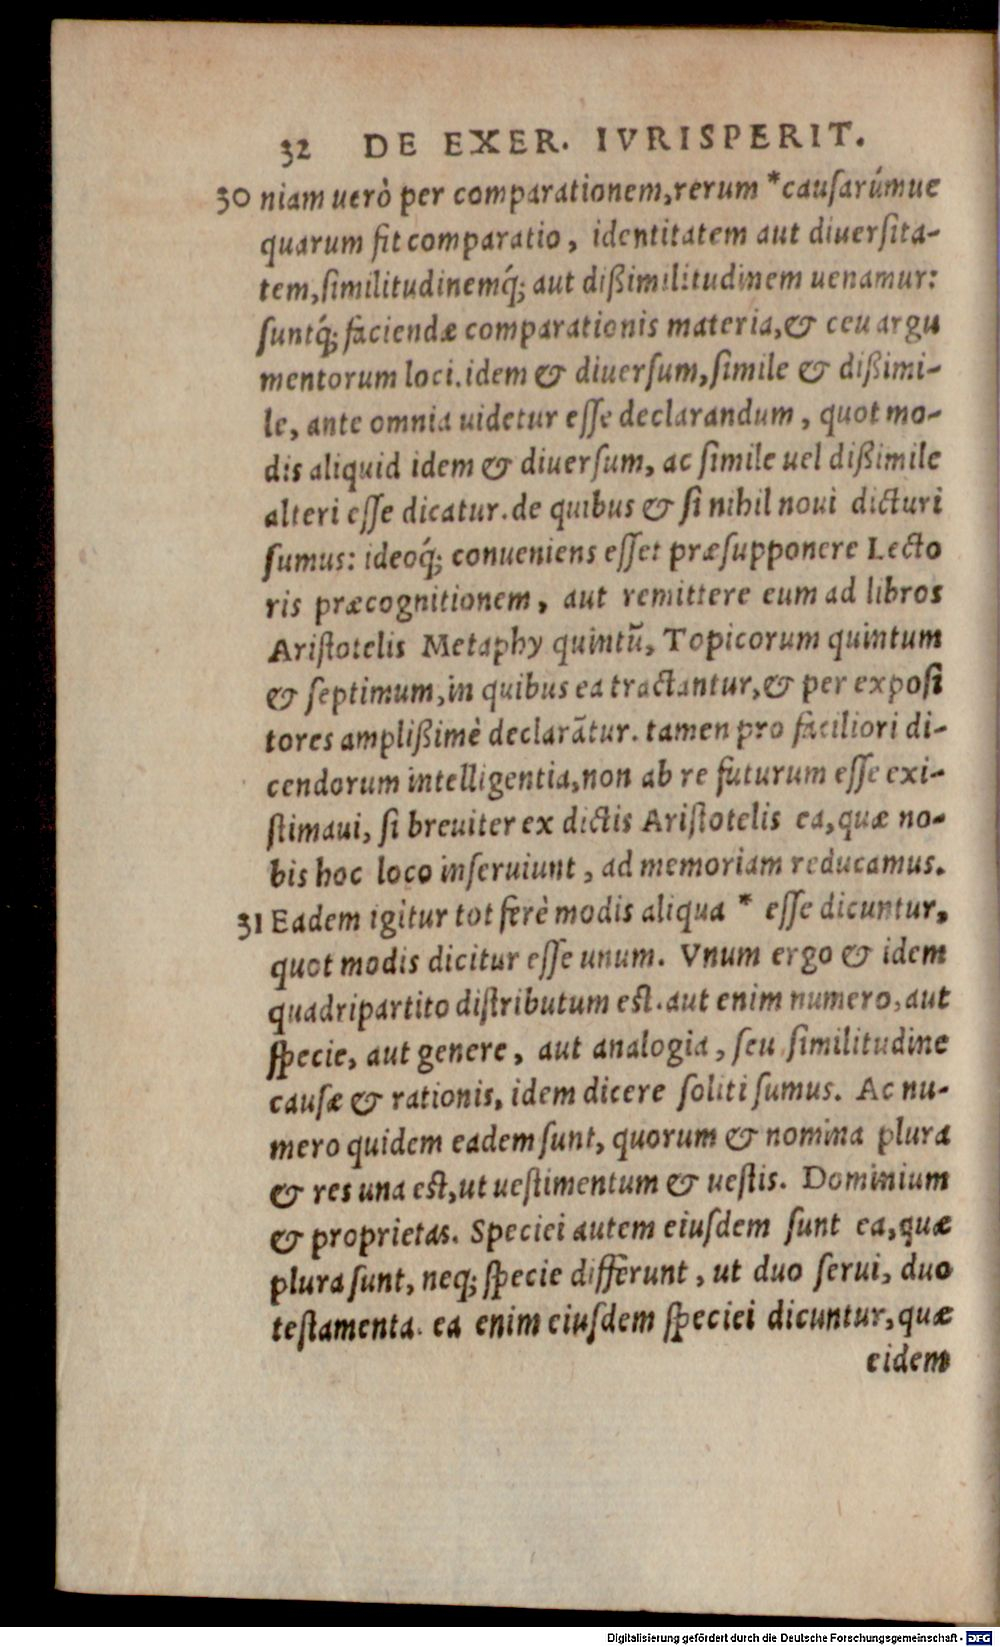 32 DE EXER. IVRISPERIT.
30 niam uerò per comparationem, rerum *causarúmue
quarum fit comparatio, identitatem aut diuersita-
tem, similitudinemq́; aut dißimilitudinem uenamur:
suntq́; faciendæ comparationis materia, & ceu argu
mentorum loci. idem & diuersum, simile & dißimi-
le, ante omnia uidetur esse declarandum, quot mo-
dis aliquid idem & diuersum, ac simile uel dißimile
alteri esse dicatur. de quibus & si nihil noui dicturi
sumus: ideoq́; conueniens esset præsupponere Lecto
ris præcognitionem, aut remittere eum ad libros
Aristotelis Metaphy quintū, Topicorum quintum
& septimum, in quibus ea tractantur, & per exposi
tores amplißimè declarãtur. tamen pro faciliori di-
cendorum intelligentia, non ab re futurum esse exi-
stimaui, si breuiter ex dictis Aristotelis ea, quæ no-
bis hoc loco inseruiunt, ad memoriam reducamus.
31 Eadem igitur tot ferè modis aliqua * esse dicuntur,
quot modis dicitur esse unum. Vnum ergo & idem
quadripartito distributum est. aut enim numero, aut
specie, aut genere, aut analogia, seu similitudine
causæ & rationis, idem dicere soliti sumus. Ac nu-
mero quidem eadem sunt, quorum & nomina plura
& res una est, ut uestimentum & uestis. Dominium
& proprietas. Speciei autem eiusdem sunt ea, quæ
plura sunt, neq; specie differunt, ut duo serui, duo
testamenta. ea enim eiusdem speciei dicuntur, quæ
eidem
Digitalisierung gefördert durch die Deutsche Forschungsgemeinschaft - DFG